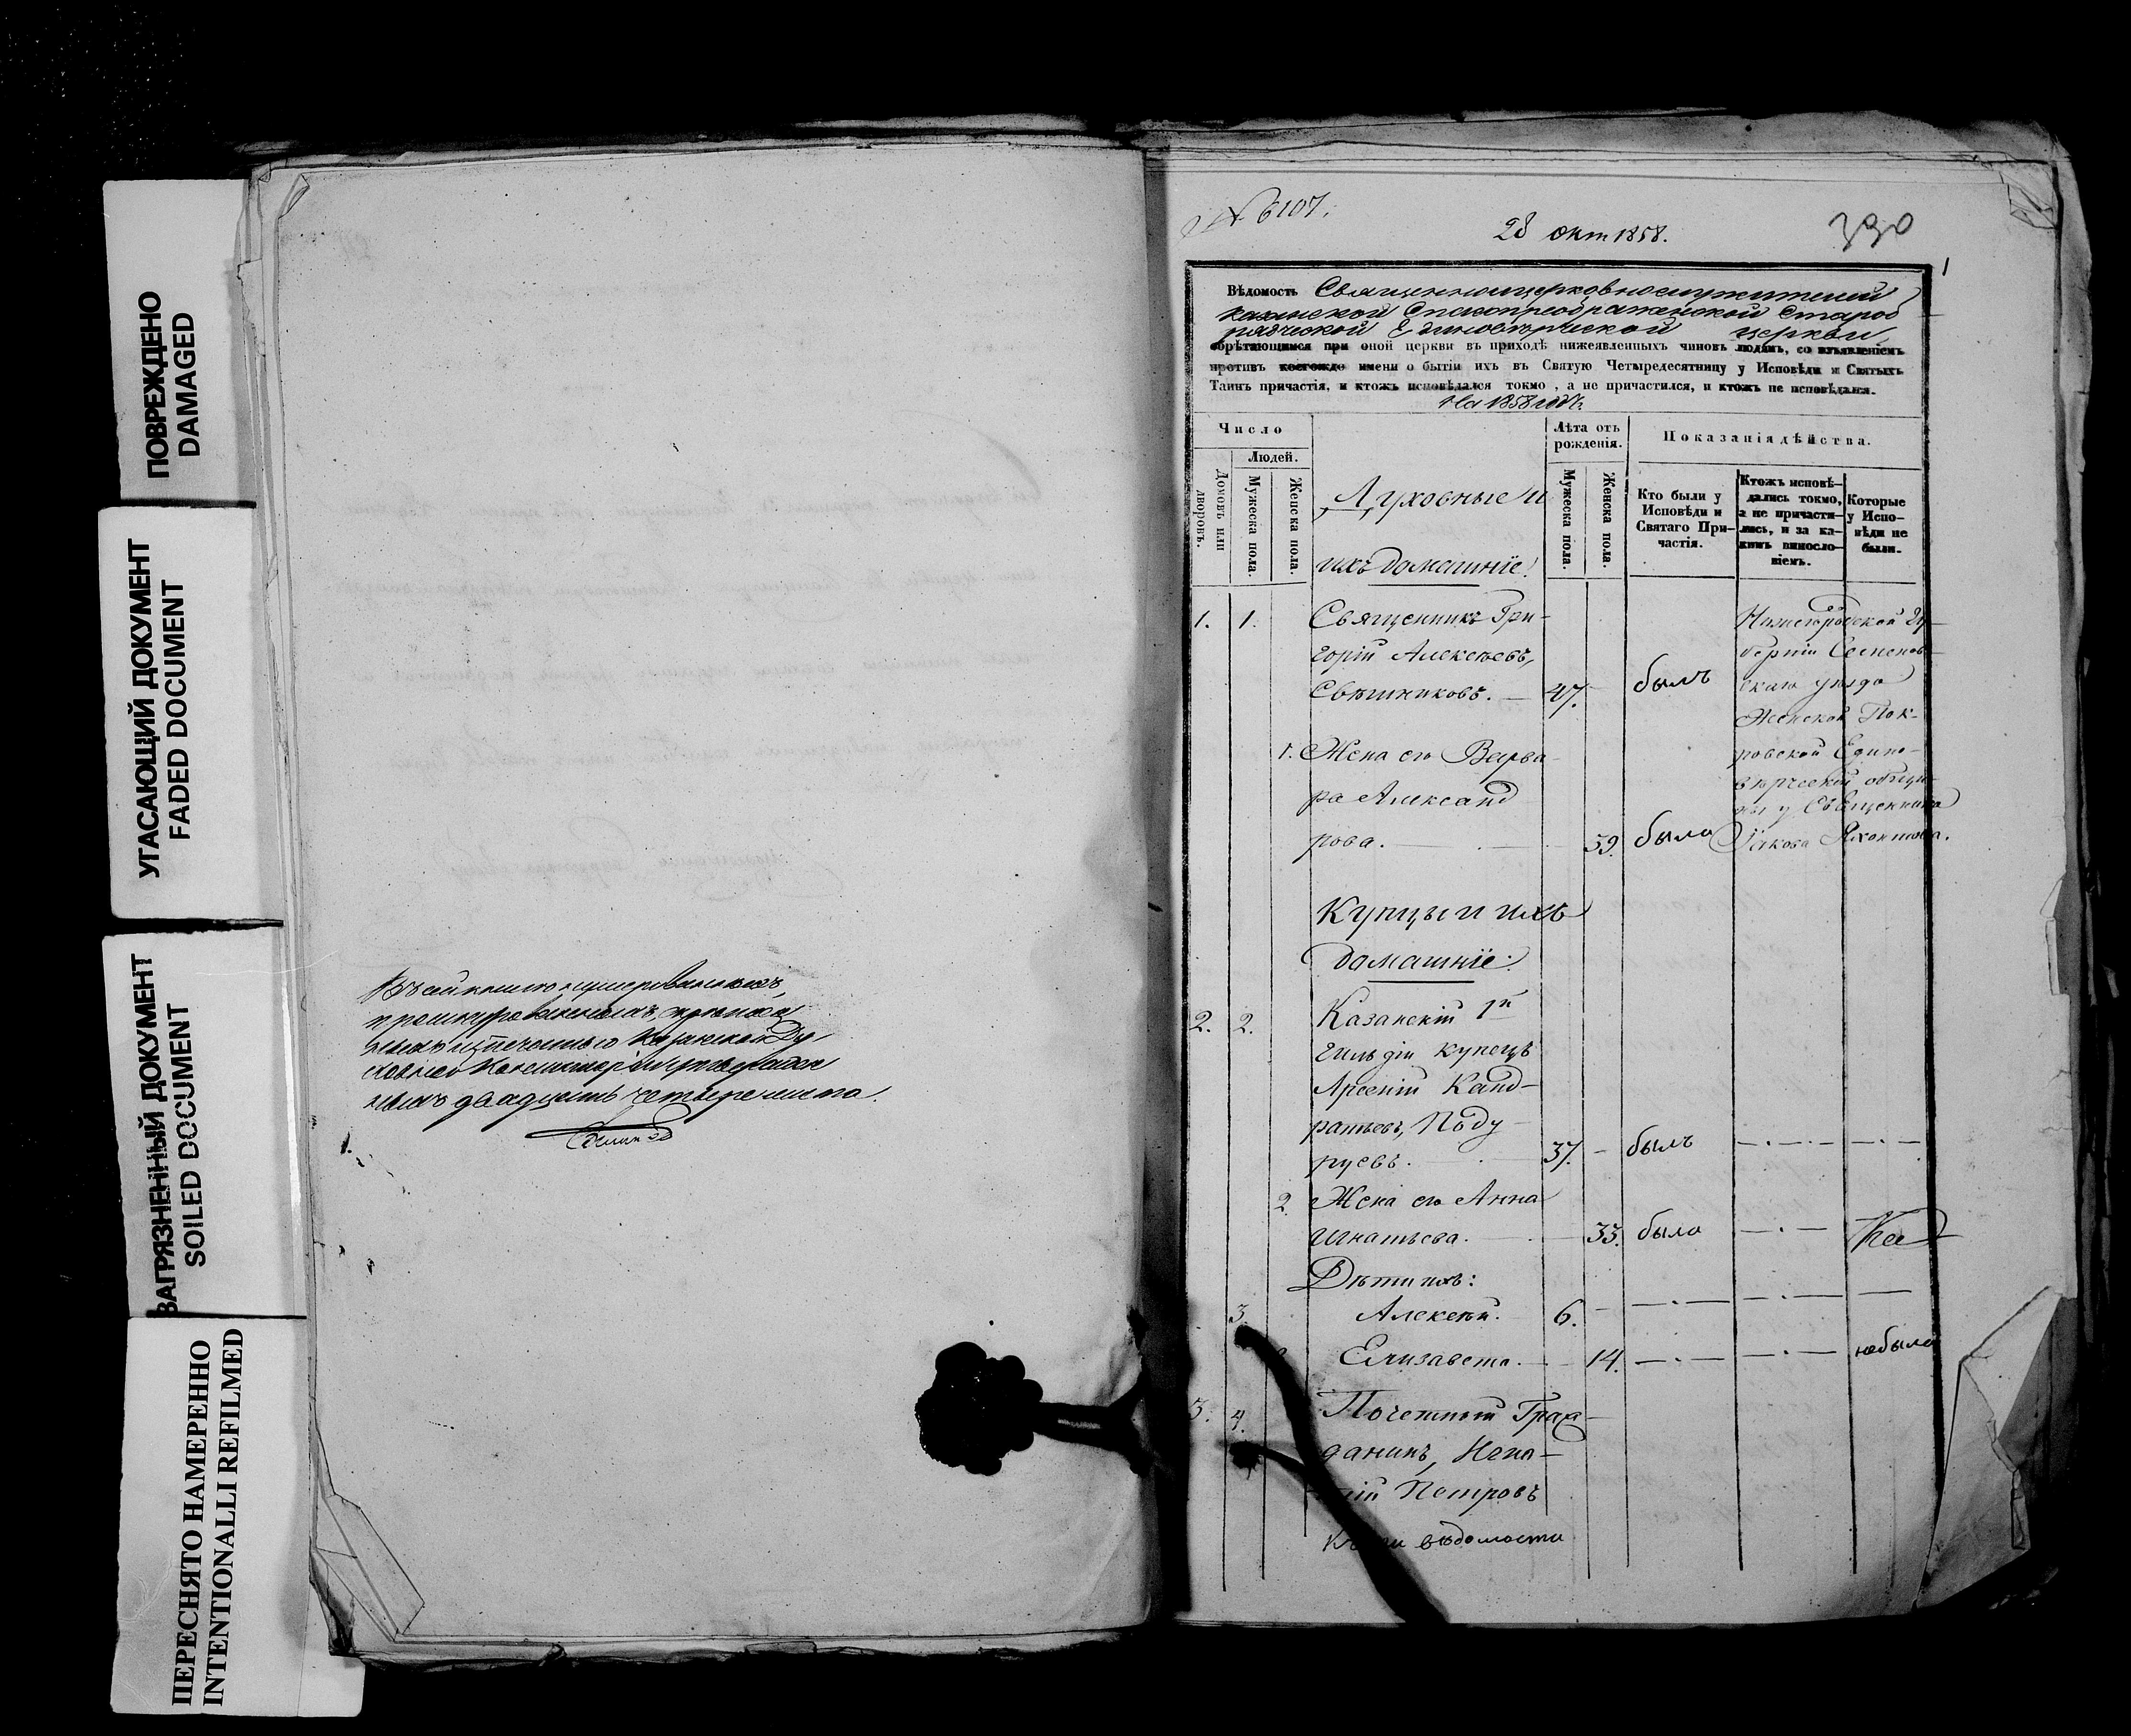 ПОВРЕЖДЕНО
DAMAGED
УГАСАЮЩИЙ ДОКУМЕНТ
FADED DOCUMENT
ЗАГРЯЗНЕННЫЙ ДОКУМЕНТ
SOILED DOCUMENT
ПЕРЕСНЯТО НАМЕРЕННО
INTENTIONALLI REFILMED
двадцать четыре листа.
№ 6107.
28 окт 1858.
390
1
Вѣдомость Священноцерковнослужителей
Казанской Спасопреображенской Старооб
рядческой Единовѣрческой церкви,
обрѣтающимся при оной церкви въ приходѣ нижеявленныхъ чиновъ людямъ, со изъявленіемъ
противъ коегождо имени о бытіи ихъ въ Святую Четыредесятницу у Исповѣди и Святыхъ
Таинъ причастія, и ктожъ исповѣдался токмо, а не причастился, и ктожъ не исповѣдался.
На 1858 годъ.
Число
Людей.
Домовъ или дворовъ.
Мужеска пола.
Женска пола.
Лѣта отъ
рожденія.
Мужеска пола.
Женска пола.
Показанія дѣйства.
Кто были у
Исповѣди и
Святаго При-
частія.
Ктожъ исповѣ-
дались токмо,
а не причасти-
лись, и за ка-
кимъ винослo-
віемъ.
Которые
у Испо-
вѣди не
были.
Духовные и
ихъ домашніе.
1. 1. Священникъ Гри-
горій Алексѣевъ,
Свѣшниковъ. — 47. былъ
1. Жена его Варва-
ра Александ
рова. — 59. была
Нижегородской Гу-
берніи Семенов-
скаго уѣзда
Женской Пок-
ровской Едино-
вѣрческой общи-
ны у Священника
Іакова Яхонтова.
Купцы и ихъ
домашніе:
2. 2. Казанскій 1й
гильдіи купецъ
Арсеній Канд-
ратьевъ, Поду-
руевъ. — 37. — былъ
2. Жена его Анна
Игнатьева. — 33. была
Дѣти ихъ:
3. Алексѣй. 6.
Елизавета. — 14. не была
3. 4. Почетный Граж-
данинъ, Игна-
тій Петровъ
вѣдомости